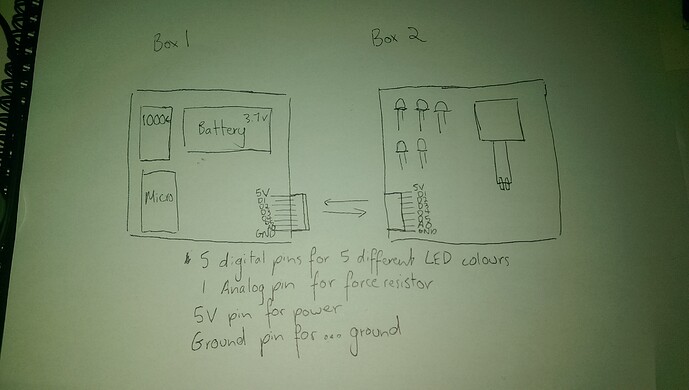 Box 1
Box 2
1000c
Battery 3.7v
Micro
5V
D1
D2
D3
D4
D5
A0
GND
5V
D1
D2
D3
D4
D5
A0
GND
5 digital pins for 5 different LED colours
1 Analog pin for force resistor
5V pin for power
Ground pin for ... ground